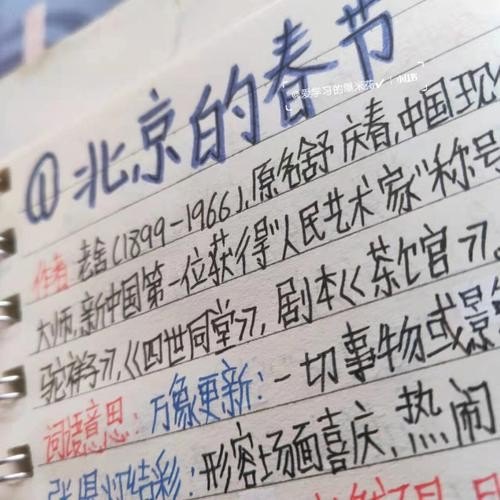 ①北京的春节
@爱学习的爆米花 | 小红书
作者:老舍(1899-1966),原名舒庆春,中国现
大师,新中国第一位获得"人民艺术家"称号
骆驼祥子》,《四世同堂》,剧本《茶馆》。
词语意思:万象更新:一切事物或景
张灯结彩:形容场面喜庆,热闹